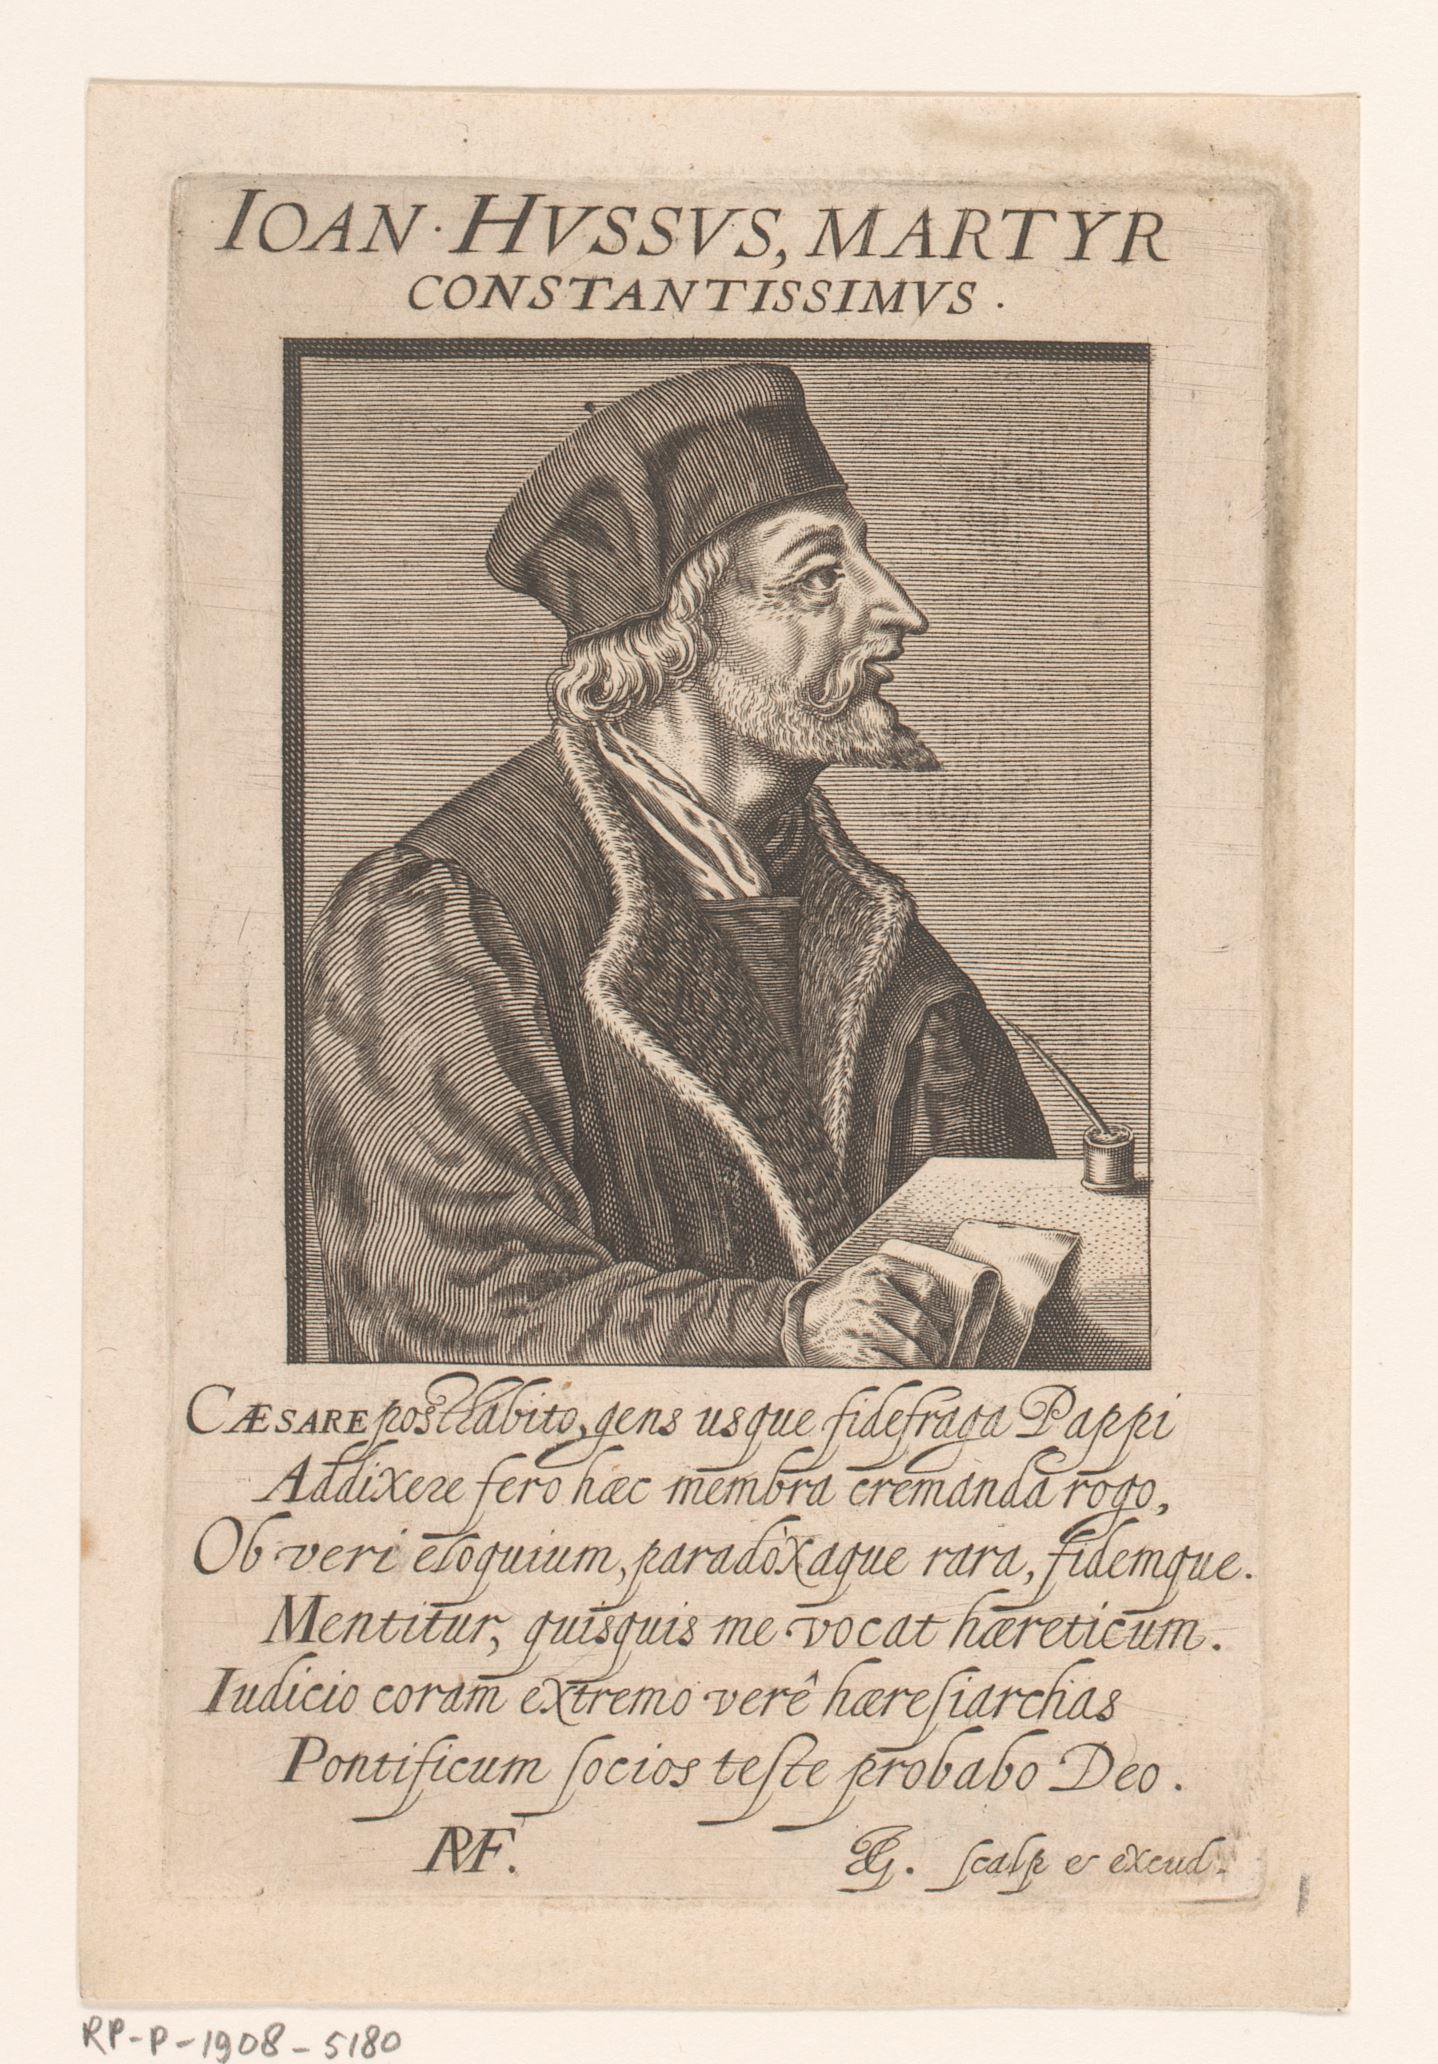 IOAN · HVSSVS, MARTYR
CONSTANTISSIMVS .
CÆSARE posthabito, gens usque fidefraga Pappi
Addixere fero hæc membra cremanda rogo,
Ob veri eloquium, paradoxaque rara, fidemque.
Mentitur, quisquis me vocat hæreticum.
Iudicio coram extremo verê hæreſiarchas
Pontificum ſocios teſte probabo Deo.
ſcalp & excud.
RP-P-1908-5180